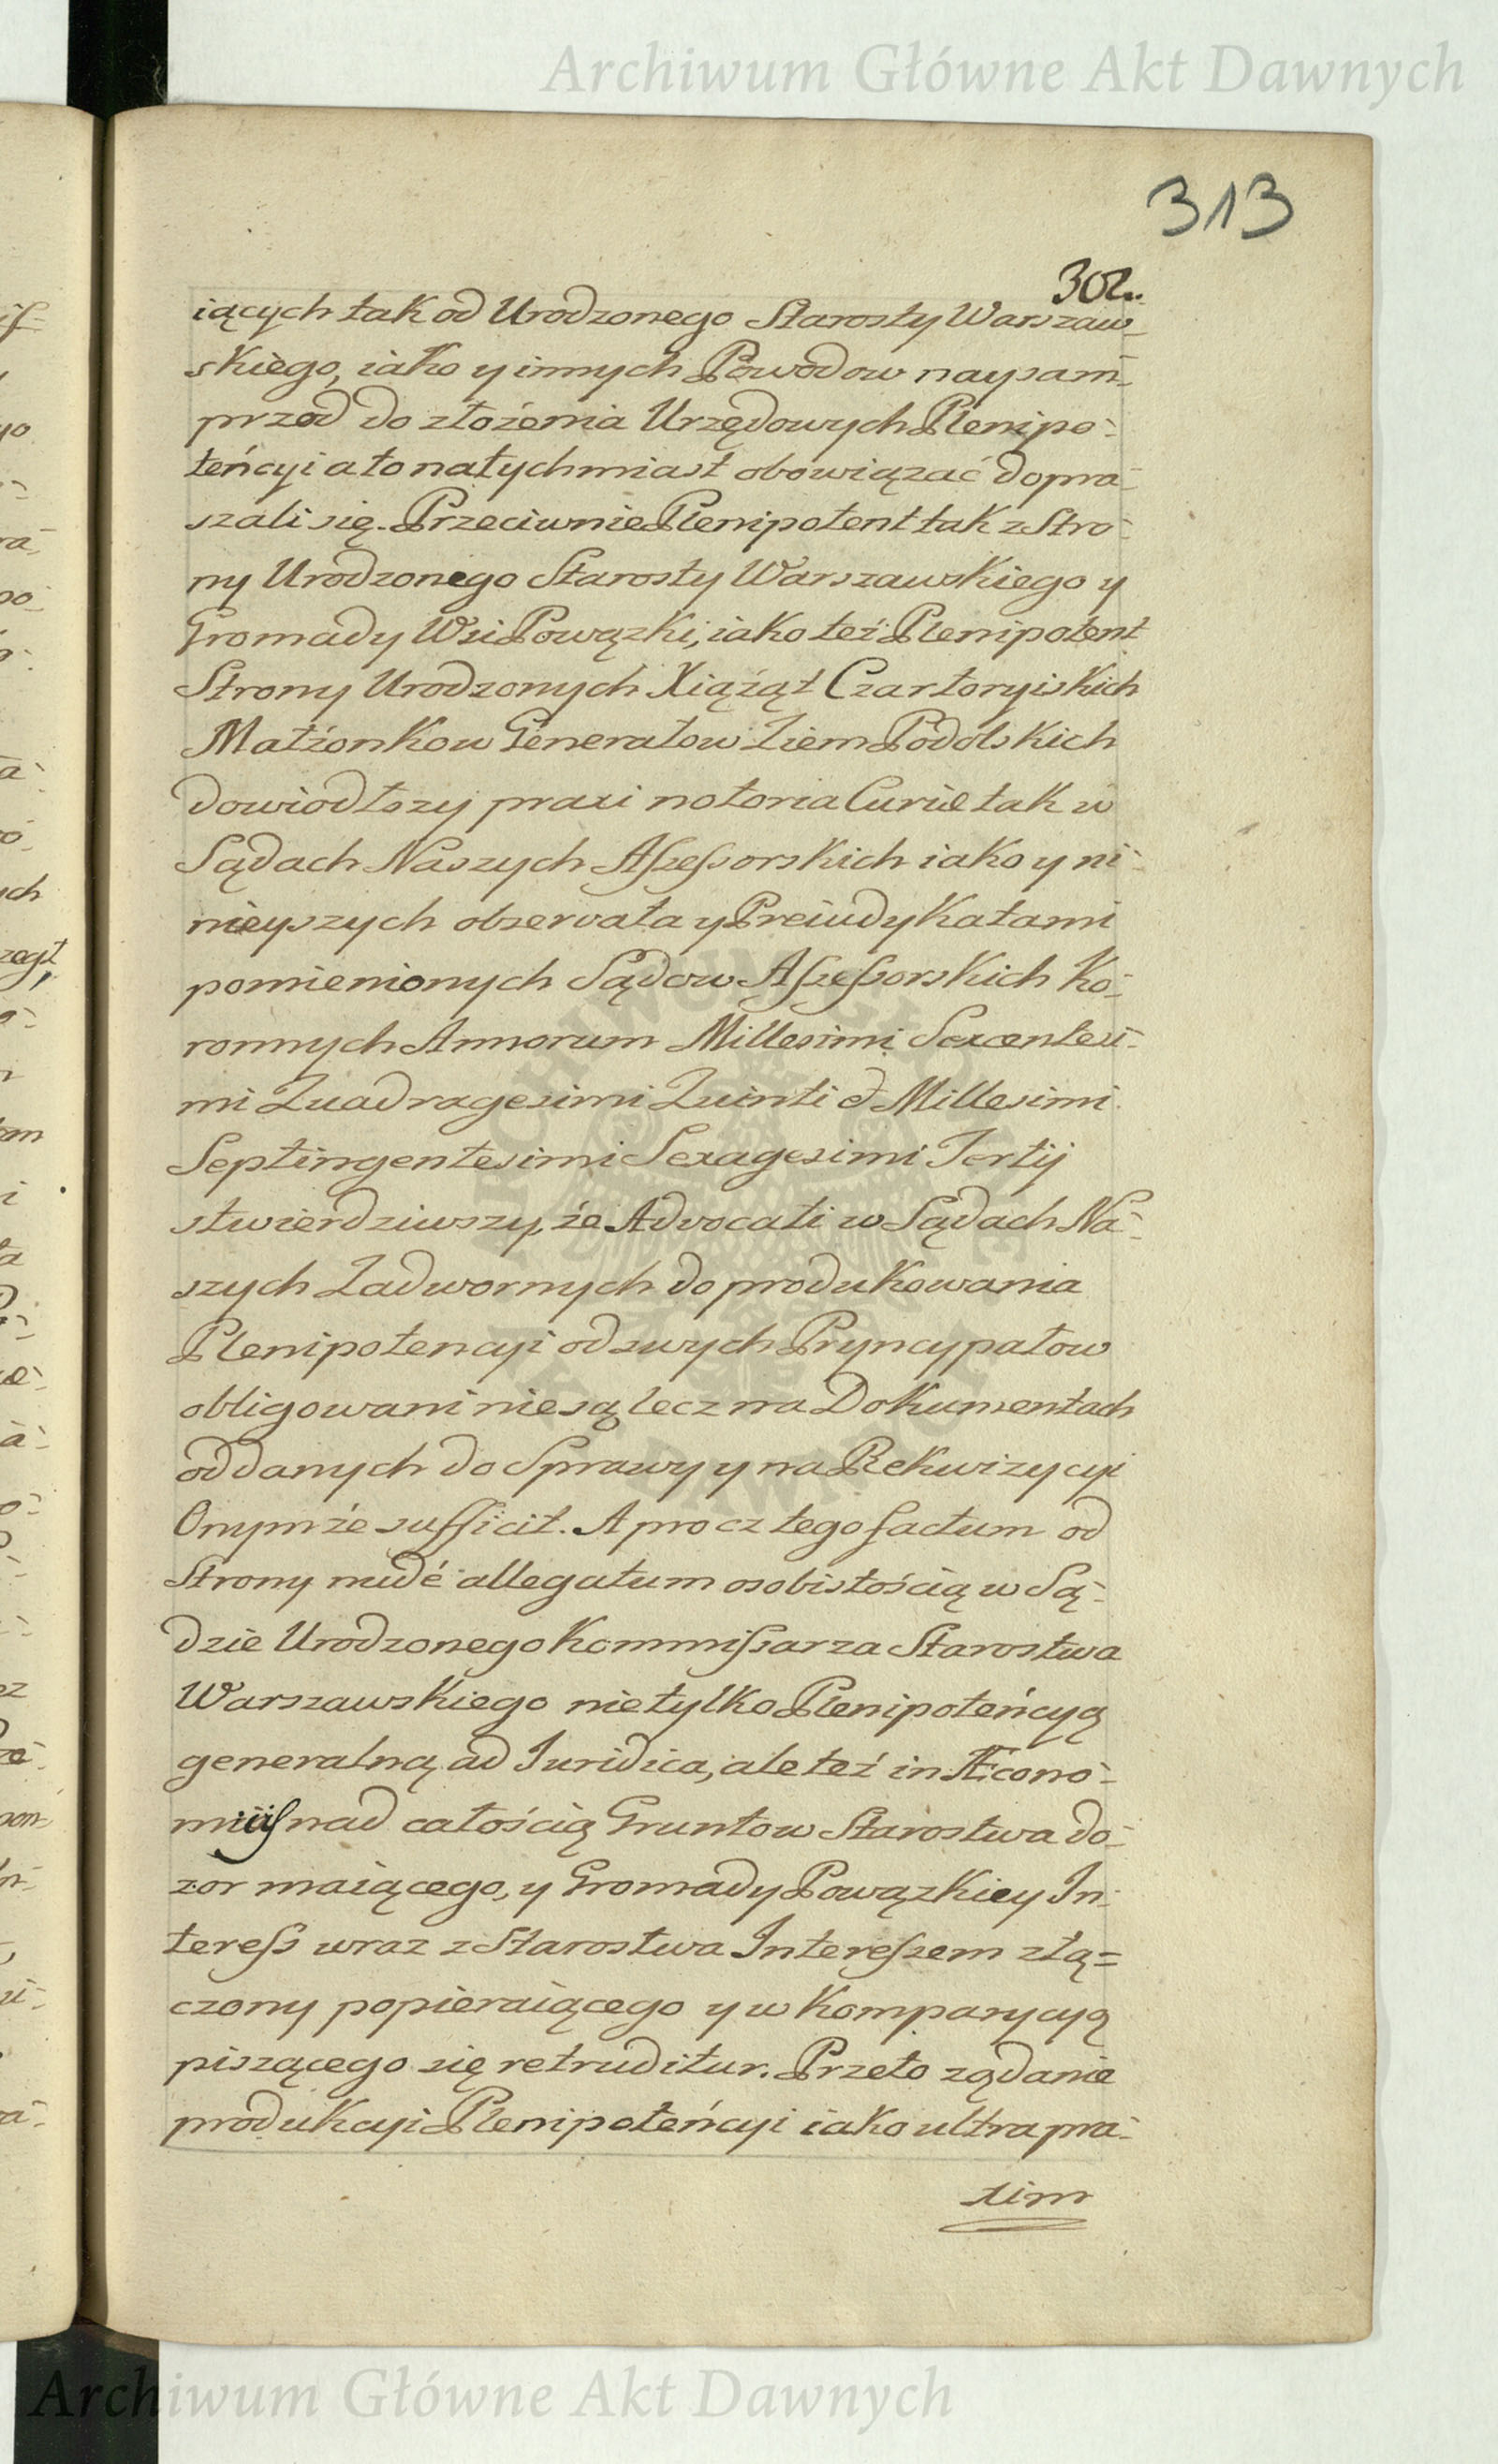 Archiwum Główne Akt Dawnych
313
302.
iących tak od Urodzonego Starosty Warszaw-
skiego, iako y innych Powodow naysam-
przod do złożenia Urzędowych Plenipo-
teńcyi a to natychmiast obowiązać dopra-
szali się. Przeciwnie Plenipotent tak z Stro-
ny Urodzonego Starosty Warszawskiego y
Gromady Wsi Powązki, iako też Plenipotent
Strony Urodzonych Xiążąt Czartoryiskich
Małżonkow Generałow Ziem Podolskich
dowiodłszy praxi notoria Curiæ tak w
Sądach Naszych Aſseſsorskich iako y ni-
nieyszych observata y Preiudykatami
pomienionych Sądow Aſseſsorskich Ko-
ronnych Annorum Millesimi Sexcentesi-
mi Quadragesimi Quinti & Millesimi
Septingentesimi Sexagesimi Tertij
stwierdziwszy, że Advocati w Sądach Na-
szych Zadwornych do produkowania
Plenipotencyi od swych Pryncypałow
obligowani nie są lecz na Dokumentach
oddanych do Sprawy y na Rekwizycyi
Onymże sufficit. A procz tego factum od
Strony allegatum osobistością w Są-
dzie Urodzonego Kommiſsarza Starostwa
Warszawskiego nie tylko Plenipoteńcyą
generalną ad Iuridica, ale też in Æcono-
miis nad całością Gruntow Starostwa do-
zor maiącego, y Gromady Powązkiey In-
tereſs wraz z Starostwa Intereſsem złą=
czony popieraiącego y w Komparycyą
piszącego się retruditur. Przeto żądanie
produkcyi Plenipoteńcyi iako ultra pra-
xim
Archiwum Główne Akt Dawnych